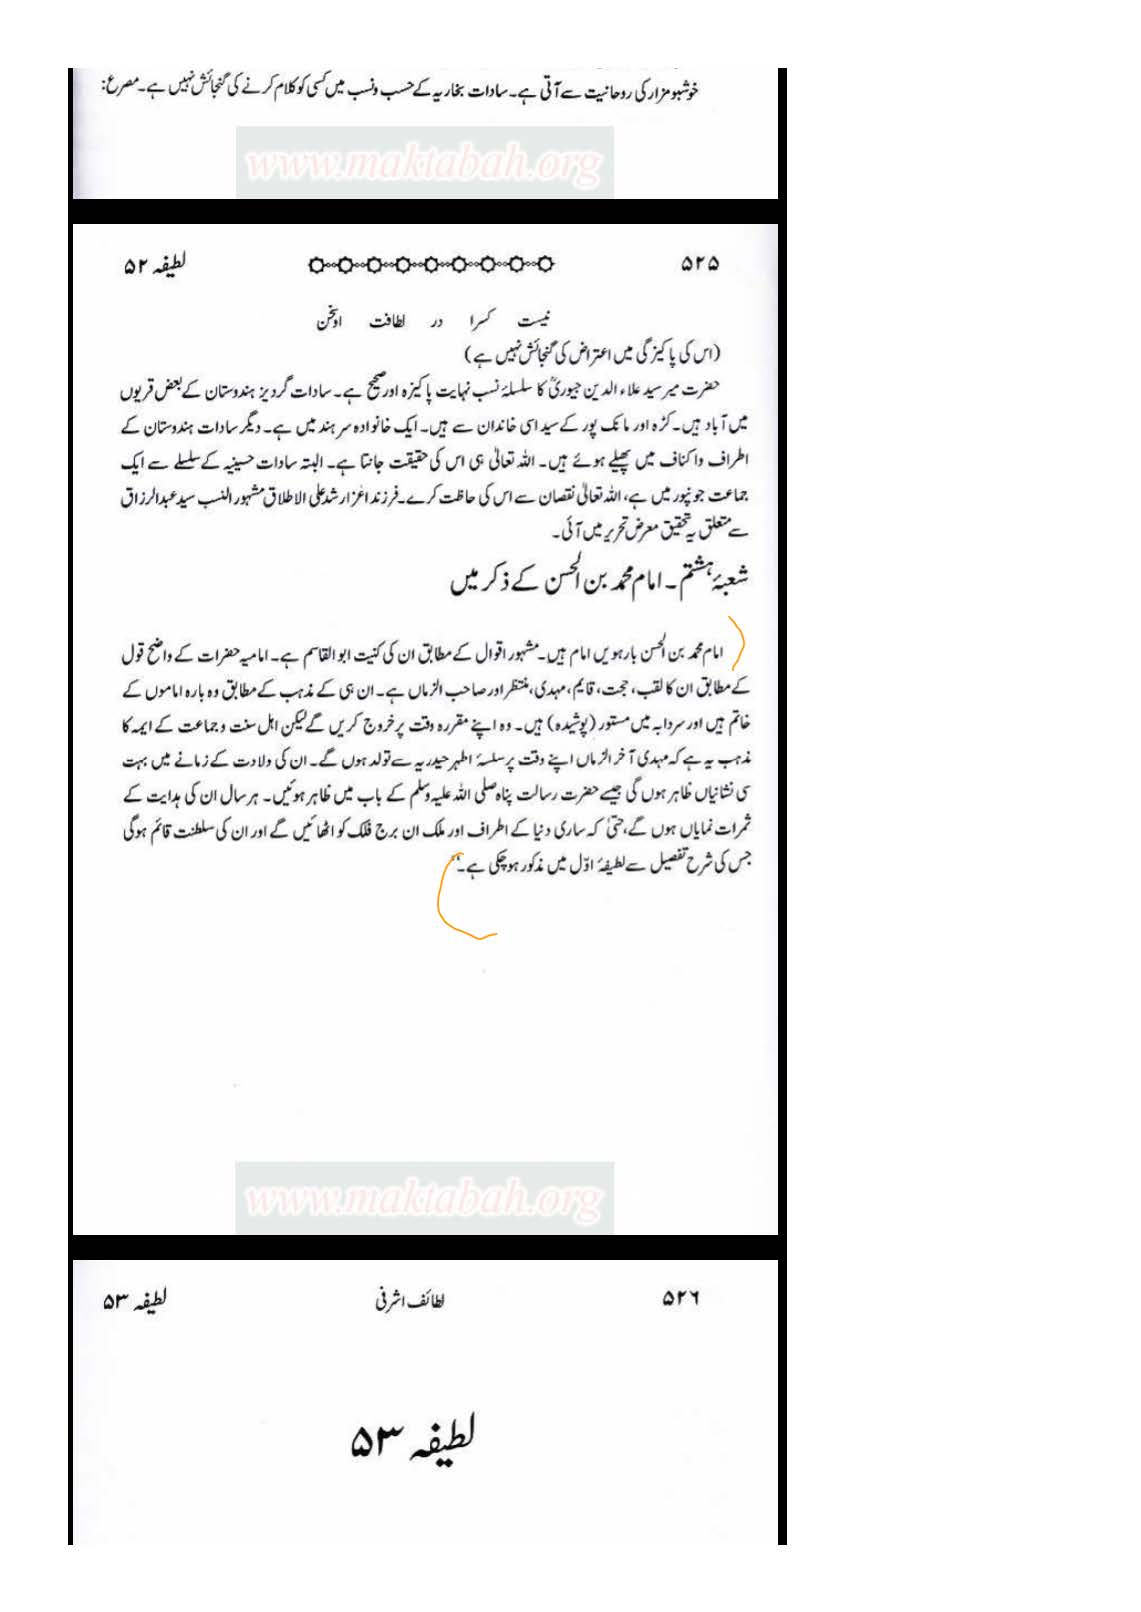 خوشبو مزار کی روحانیت سے آتی ہے۔ سادات بخاریہ کے حسب ونسب میں کسی کو کلام کرنے کی گنجائش نہیں ہے۔ مصرع:
www.maktabah.org
۵۲۵ لطیفہ ۵۲
نیست کسرا در لطافت اوسخن
(اس کی پاکیزگی میں اعتراض کی گنجائش نہیں ہے)
حضرت میر سید علاء الدین جیوریؒ کا سلسلۂ نسب نہایت پاکیزہ اور صحیح ہے۔ سادات گردیز ہندوستان کے بعض قریوں
میں آباد ہیں۔ کڑہ اور مانک پور کے سید اسی خاندان سے ہیں۔ ایک خانوادہ سر ہند میں ہے۔ دیگر سادات ہندوستان کے
اطراف واکناف میں پھیلے ہوئے ہیں۔ اللہ تعالیٰ ہی اس کی حقیقت جانتا ہے۔ البتہ سادات حسینیہ کے سلسلے سے ایک
جماعت جونپور میں ہے، اللہ تعالیٰ نقصان سے اس کی حاظت کرے۔ فرزند اعزار شدعلی الاطلاق مشہور النسب سید عبدالرزاق
سے متعلق یہ تحقیق معرض تحریر میں آئی۔
شعبۂ ہشتم۔ امام محمد بن الحسن کے ذکر میں
امام محمد بن الحسن بارہویں امام ہیں۔ مشہور اقوال کے مطابق ان کی کنیت ابو القاسم ہے۔ امامیہ حضرات کے واضح قول
کے مطابق ان کا لقب، حجت، قایم، مہدی، منتظر اور صاحب الزماں ہے۔ ان ہی کے مذہب کے مطابق وہ بارہ اماموں کے
خاتم ہیں اور سردابہ میں مستور (پوشیدہ) ہیں۔ وہ اپنے مقررہ وقت پر خروج کریں گے لیکن اہل سنت و جماعت کے ایمہ کا
مذہب یہ ہے کہ مہدی آخر الزماں اپنے وقت پر سلسۂ اطہر حیدریہ سے تولد ہوں گے۔ ان کی ولادت کے زمانے میں بہت
سی نشانیاں ظاہر ہوں گی جیسے حضرت رسالت پناہ صلی اللہ علیہ وسلم کے باب میں ظاہر ہوئیں۔ ہر سال ان کی ہدایت کے
ثمرات نمایاں ہوں گے، حتیٰ کہ ساری دنیا کے اطراف اور ملک ان برج فلک کو اٹھائیں گے اور ان کی سلطنت قائم ہوگی
جس کی شرح تفصیل سے لطیفۂ اوّل میں مذکور ہو چکی ہے۔“
www.maktabah.org
۵۲۶ لطائف اشرفی لطیفہ ۵۳
لطیفہ ۵۳